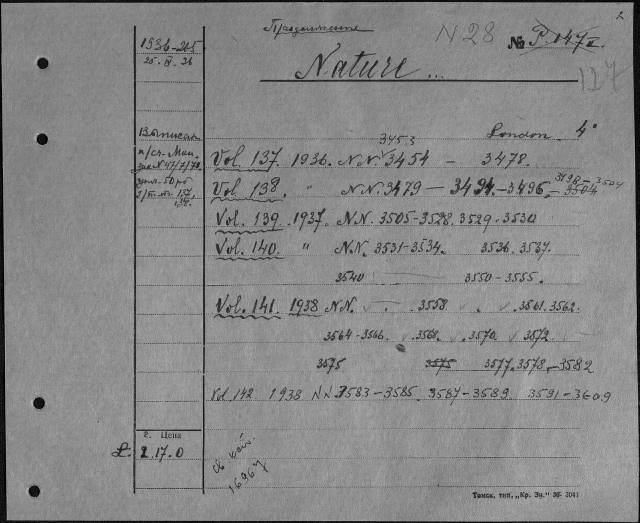 2
Продолжение N28 № P.147 II
127
1936-205
25.VI.36
Nature...
London 4°
Выписан
3453
Vol. 137. 1936. N.N. 3454 — 3478.
зак. N 47/7/70
Vol. 138. " N.N. 3479 — 3494. — 3496. — 3498 — 3504
Vol. 139. 1937. N.N. 3505-3528. 3529-3530
Vol. 140. " N.N. 3531-3534. 3536. 3537.
3540 3550-3555.
Vol. 141. 1938 N.N. 3558 3561. 3562.
3564-3566 3568. 3570 3572
3575 3575 3577. 3578. — 3582
Vol. 142 1938 N.N. 3583-3585. 3587-3589. 3591-3609
г. Цена
£. 2.17.0
16967
Томск, тип. „Кр. Зн." 36 3041